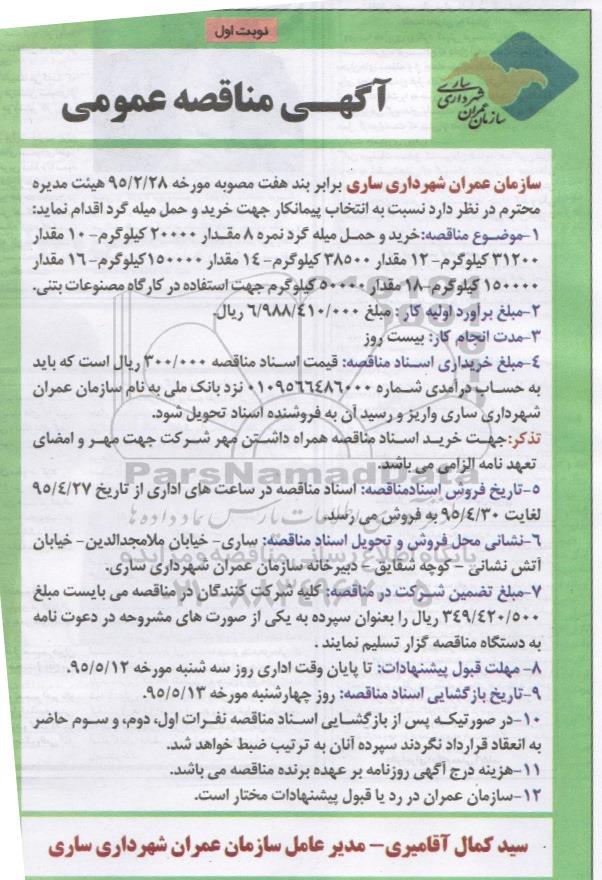 نوبت اول
سازمان عمران شهرداری ساری
آگهـی مناقصه عمومی
سازمان عمران شهرداری ساری برابر بند هفت مصوبه مورخه ۹۵/۲/۲۸ هیئت مدیره
محترم در نظر دارد نسبت به انتخاب پیمانکار جهت خرید و حمل میله گرد اقدام نماید:
۱-موضوع مناقصه:خرید و حمل میله گرد نمره ۸ مقدار ۲۰۰۰۰ کیلوگرم- ۱۰ مقدار
۳۱۲۰۰ کیلوگرم- ۱۲ مقدار ۳۸۵۰۰ کیلوگرم-۱۴ مقدار ۱۵۰۰۰۰کیلوگرم- ۱۶ مقدار
۱۵۰۰۰۰ کیلوگرم-۱۸ مقدار ۵۰۰۰۰ کیلوگرم جهت استفاده در کارگاه مصنوعات بتنی.
۲-مبلغ برآورد اولیه کار : مبلغ ۶/۹۸۸/۴۱۰/۰۰۰ ریال.
۳-مدت انجام کار: بیست روز
۴-مبلغ خریداری اسناد مناقصه: قیمت اسناد مناقصه ۳۰۰/۰۰۰ ریال است که باید
به حساب درآمدی شماره ۰۱۰۹۵۶۶۴۸۶۰۰۰ نزد بانک ملی به نام سازمان عمران
شهرداری ساری واریز و رسید آن به فروشنده اسناد تحویل شود.
تذکر:جهت خرید اسناد مناقصه همراه داشتن مهر شرکت جهت مهر و امضای
تعهد نامه الزامی می باشد.
۵-تاریخ فروش اسنادمناقصه: اسناد مناقصه در ساعت های اداری از تاریخ ۹۵/۴/۲۷
لغایت ۹۵/۴/۳۰ به فروش می رسد.
۶-نشانی محل فروش و تحویل اسناد مناقصه: ساری- خیابان ملامجدالدین- خیابان
آتش نشانی - کوچه شقایق - دبیرخانه سازمان عمران شهرداری ساری.
۷-مبلغ تضمین شرکت در مناقصه: کلیه شرکت کنندگان در مناقصه می بایست مبلغ
۳۴۹/۴۲۰/۵۰۰ ریال را بعنوان سپرده به یکی از صورت های مشروحه در دعوت نامه
به دستگاه مناقصه گزار تسلیم نمایند .
۸- مهلت قبول پیشنهادات: تا پایان وقت اداری روز سه شنبه مورخه ۹۵/۵/۱۲.
۹-تاریخ بازگشایی اسناد مناقصه: روز چهارشنبه مورخه ۹۵/۵/۱۳.
۱۰-در صورتیکه پس از بازگشایی اسناد مناقصه نفرات اول، دوم، و سوم حاضر
به انعقاد قرارداد نگردند سپرده آنان به ترتیب ضبط خواهد شد.
۱۱-هزینه درج آگهی روزنامه بر عهده برنده مناقصه می باشد.
۱۲-سازمان عمران در رد یا قبول پیشنهادات مختار است.
سید کمال آقامیری- مدیر عامل سازمان عمران شهرداری ساری
ParsNamadData
پایگاه اطلاع رسانی مناقصه و مزایده
۰۲۱-۸۸۳۴۹۶۷۰-۵